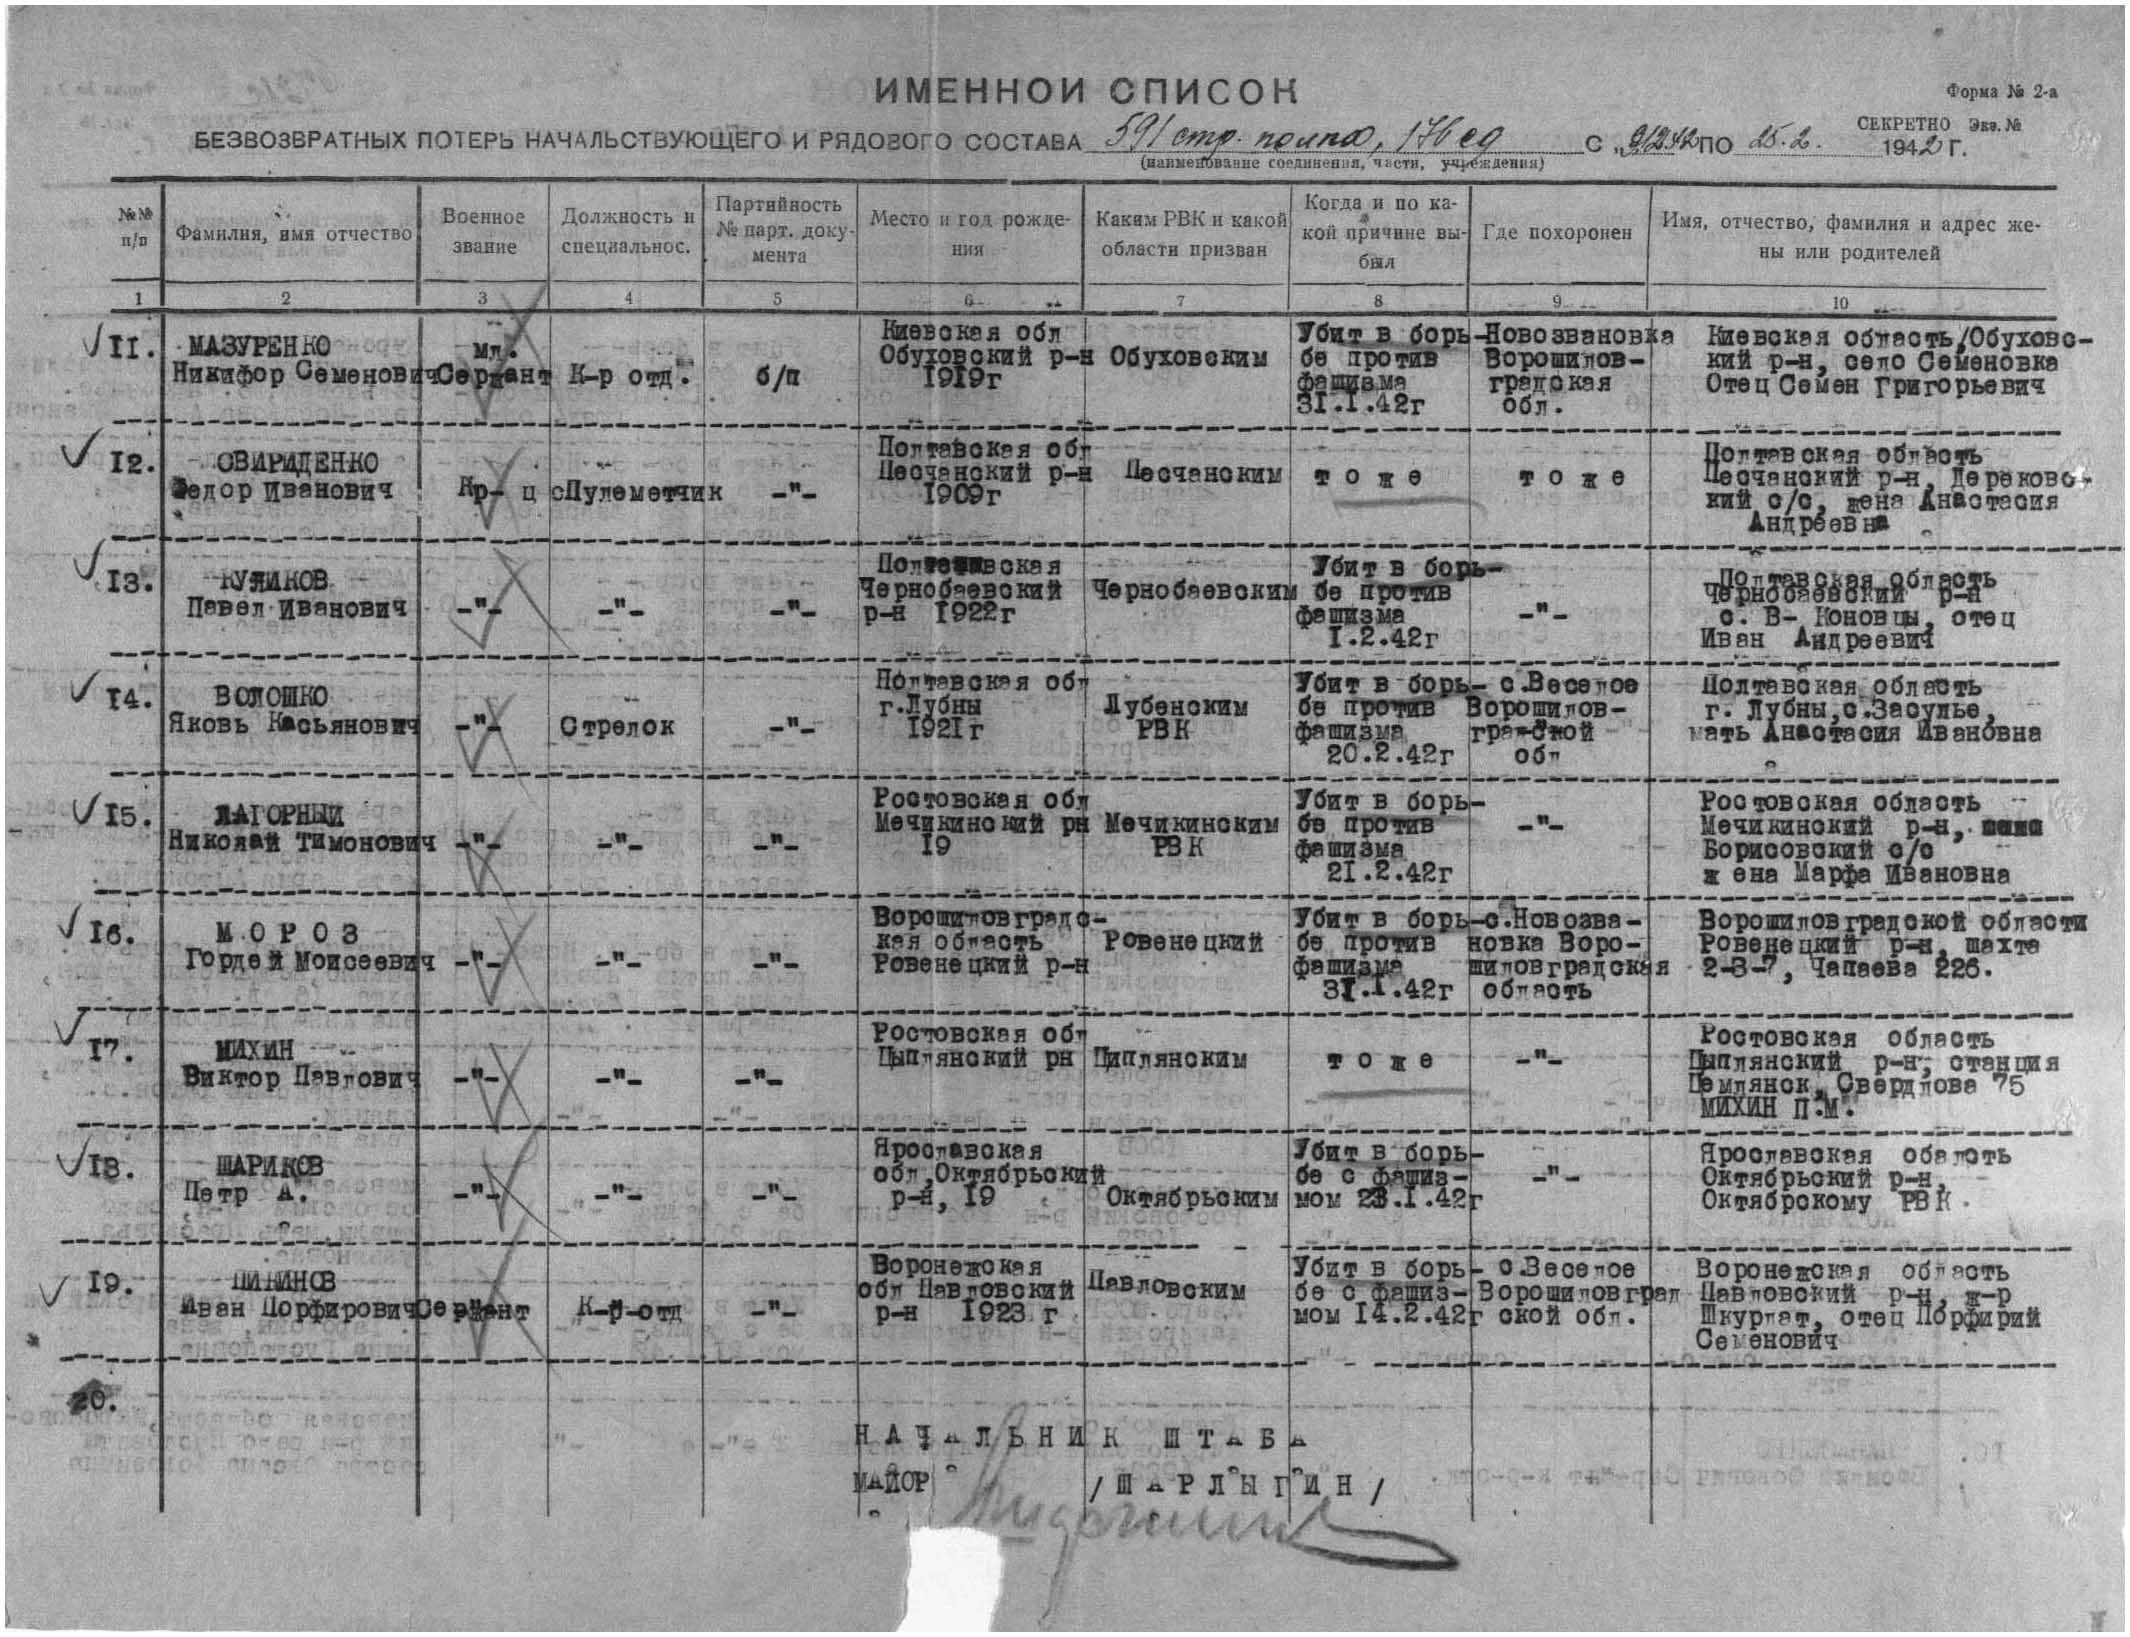 ИМЕННОЙ СПИСОК
Форма № 2-а
СЕКРЕТНО Экз. №
БЕЗВОЗВРАТНЫХ ПОТЕРЬ НАЧАЛЬСТВУЮЩЕГО И РЯДОВОГО СОСТАВА 591 стр. полка, 176 сд С „ ПО 25.2. 1942 Г.
(наименование соединения, части, учреждения)
№№ п/п
Фамилия, имя отчество
Военное звание
Должность и специальнос.
Партийность № парт. документа
Место и год рождения
Каким РВК и какой области призван
Когда и по какой причине выбыл
Где похоронен
Имя, отчество, фамилия и адрес жены или родителей
1 2 3 4 5 6 7 8 9 10
11. МАЗУРЕНКО
Никифор Семенович
мл. Сержант
К-р отд.
б/п
Киевская обл
Обуховский р-н
1919г
Обуховским
Убит в борь-
бе против
фашизма
31.1.42г
Новозвановка
Ворошилов-
градская
обл.
Киевская область/Обуховс-
кий р-н, село Семеновка
Отец Семен Григорьевич
12. СВИРИДЕНКО
Федор Иванович
Кр-ц
Пулеметчик
-"-
Полтавская обл
Песчанский р-н
1909г
Песчанским
т о ж е
т о ж е
Полтавская область
Песчанский р-н, Дерековс-
кий с/с, жена Анастасия
Андреевна
13. КУЛИКОВ
Павел Иванович
-"-
-"-
-"-
Полтавская
Чернобаевский
р-н 1922г
Чернобаевским
Убит в борь-
бе против
фашизма
1.2.42г
-"-
Полтавская область
Чернобаевский р-н
с. В- Коновцы, отец
Иван Андреевич
14. ВОЛОШКО
Яковь Касьянович
-"-
Стрелок
-"-
Полтавская обл
г.Лубны
1921г
Лубенским
РВК
Убит в борь-
бе против
фашизма
20.2.42г
с.Веселое
Ворошилов-
градской
обл
Полтавская область
г. Лубны,с.Засулье,
мать Анастасия Ивановна
15. ЛАГОРНЫЙ
Николай Тимонович
-"-
-"-
-"-
Ростовская обл
Мечикинский рн
19
Мечикинским
РВК
Убит в борь-
бе против
фашизма
21.2.42г
-"-
Ростовская область
Мечикинский р-н,
Борисовский с/с
жена Марфа Ивановна
16. М О Р О З
Гордей Моисеевич
-"-
-"-
-"-
Ворошиловградс-
кая область
Ровенецкий р-н
Ровенецкий
Убит в борь-
бе против
фашизма
31.1.42г
с.Новозва-
новка Воро-
шиловградская
область
Ворошиловградской области
Ровенецкий р-н, шахта
2-3-7, Чапаева 226.
17. МИХИН
Виктор Павлович
-"-
-"-
-"-
Ростовская обл
Цыплянский рн
Циплянским
т о ж е
-"-
Ростовская область
Цыплянский р-н, станция
Цемлянск, Свердлова 75
МИХИН П.М.
18. ШАРИКОВ
Петр А.
-"-
-"-
-"-
Ярославская
обл,Октябрьский
р-н, 19
Октябрьским
Убит в борь-
бе с фашиз-
мом 23.1.42г
-"-
Ярославская обалсть
Октябрьский р-н,
Октябрскому РВК
19. ПИКИНОВ
Иван Порфирович
Сержант
К-р-отд
-"-
Воронежская
обл Павловский
р-н 1923 г
Павловским
Убит в борь-
бе с фашиз-
мом 14.2.42г
с.Веселое
Ворошиловград
ской обл.
Воронежская область
Павловский р-н, ж-р
Шкурлат, отец Порфирий
Семенович
20.
НАЧАЛЬНИК ШТАБА
МАЙОР /ШАРЛЫГИН/